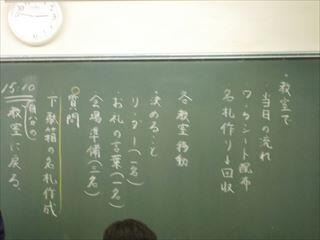 ・教室で
・当日の流れ
ワークシート配布
名札作り→回収
各教室移動
・決めること
リーダー(一名)
・お礼の言葉(一名)
会場準備(二名)
質問
下駄箱の名札作成
15:10 自分の教室に戻る。